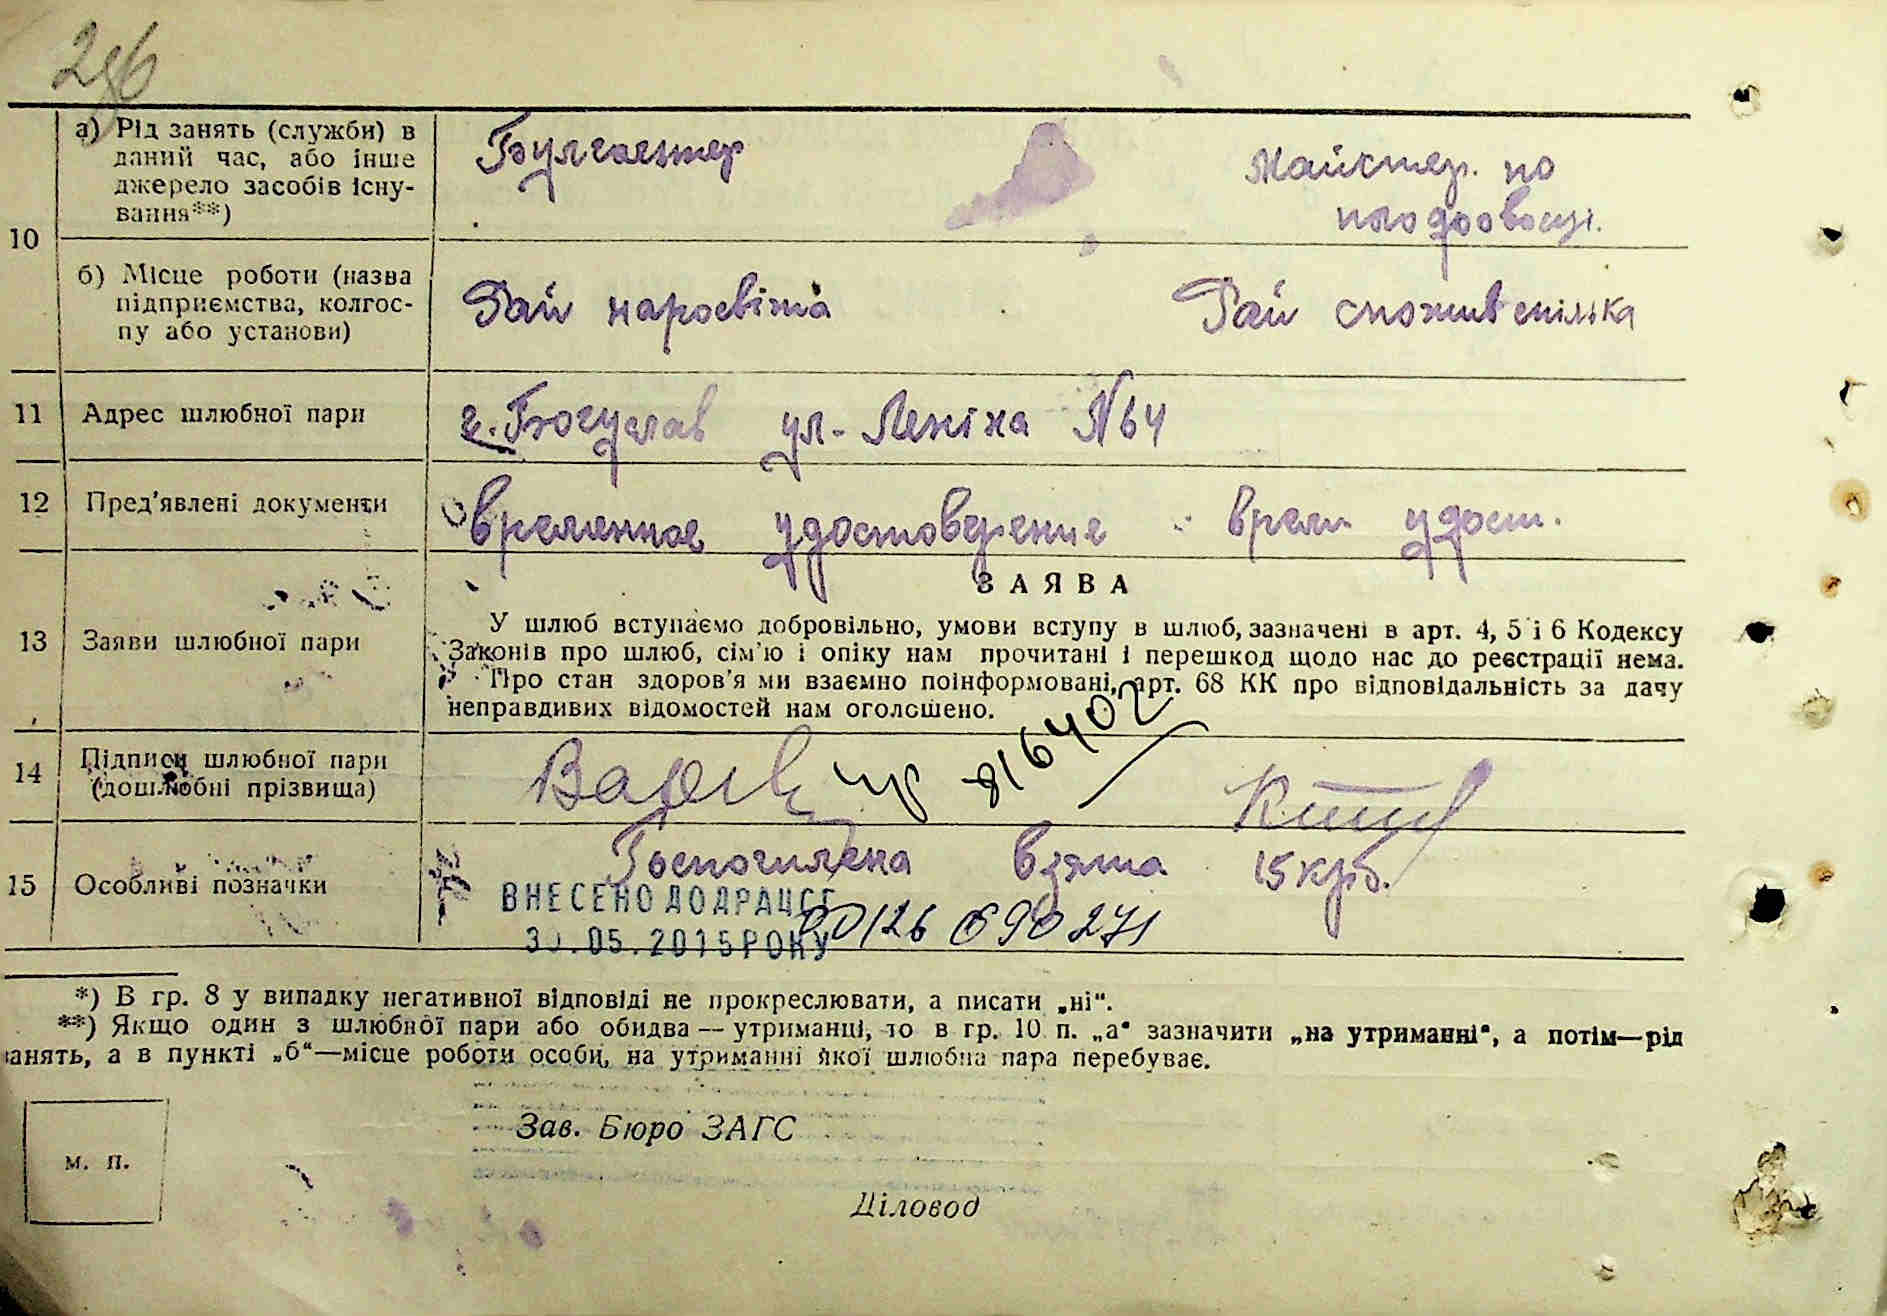 286
10
а) Рід занять (служби) в
даний час, або інше
джерело засобів існу-
вання**)
Булгалтер
Майстер. по
плодоовощі.
б) Місце роботи (назва
підприємства, колгос-
пу або установи)
Рай наросвіта
Рай споживспілка
11 Адрес шлюбної пари
г. Богуслав ул- Леніна N 64
12 Пред'явлені документи
Временное удостоверение
врем удост.
ЗАЯВА
13 Заяви шлюбної пари
У шлюб вступаємо добровільно, умови вступу в шлюб, зазначені в арт. 4, 5 і 6 Кодексу
Законів про шлюб, сім'ю і опіку нам прочитані і перешкод щодо нас до реєстрації нема.
Про стан здоров'я ми взаємно поінформовані, арт. 68 КК про відповідальність за дачу
неправдивих відомостей нам оголошено.
14 Підписи шлюбної пари
(дошлюбні прізвища)
816402
15 Особливі позначки
взята 15 крб.
ВНЕСЕНО ДО ДРАЦСГ
30.05.2015 РОКУ
00126 690271
*) В гр. 8 у випадку негативної відповіді не прокреслювати, а писати „ні“.
**) Якщо один з шлюбної пари або обидва — утриманці, то в гр. 10 п. „а“ зазначити „на утриманні“, а потім—рід
занять, а в пункті „б“—місце роботи особи, на утриманні якої шлюбна пара перебуває.
Зав. Бюро ЗАГС
м. п.
Діловод